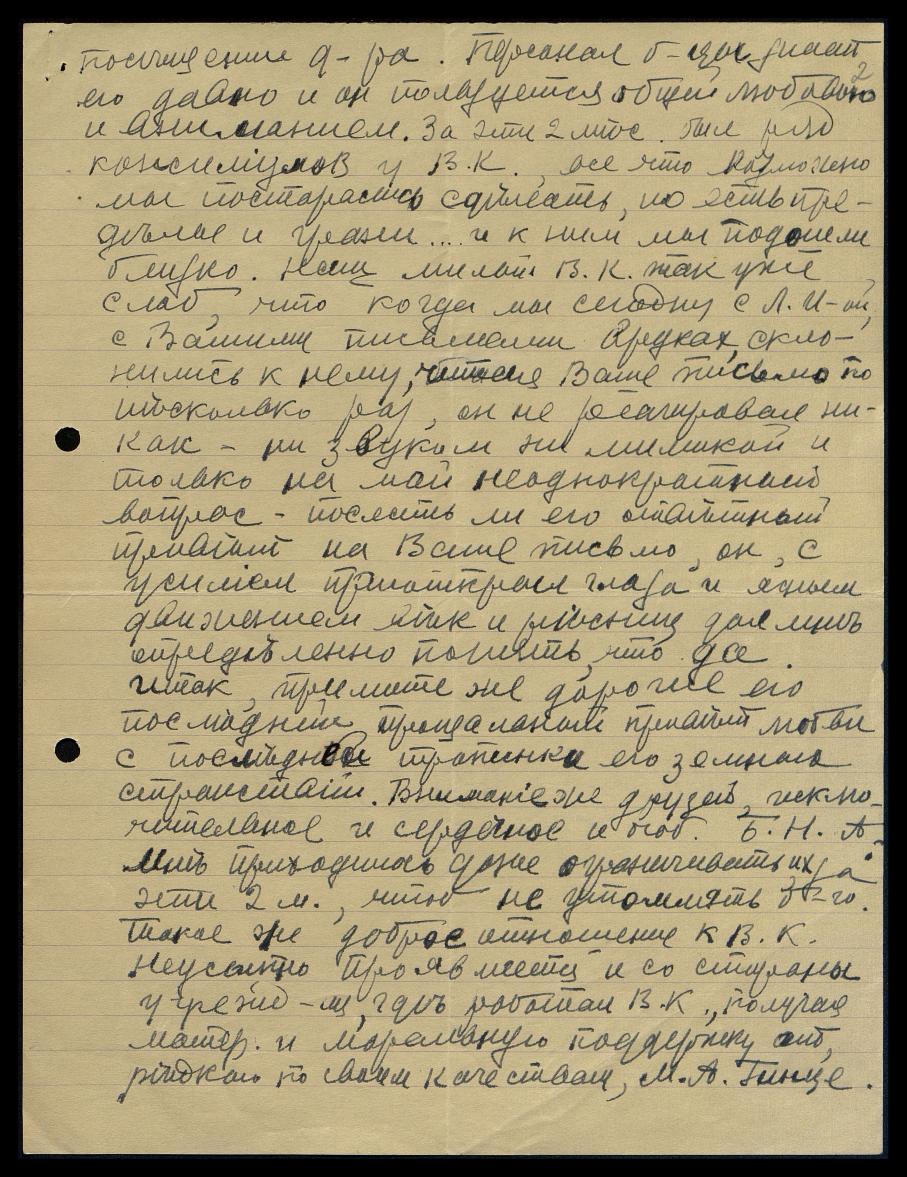 посещении д-ра. Персонал б-цы знает
2
его давно и он пользуется общей любовью
и вниманием. За эти 2 мѣс. был ряд
консилiумов у В.К., все что возможно
мы постарались сдѣлать, но есть пре-
дѣлы и грани.... и к ним мы подошли
близко. Наш милый В.К. так уже
слаб, что когда мы сегодня с Л. И-ой,
с Вашими письмами в руках, скло-
нились к нему, читая Ваше письмо по
нѣсколько раз, он не реагировал ни-
как - ни звуком ни мимикой и
только на мой неоднократный
вопрос - послать ли его отвѣтный
привѣт на Ваше письмо, он, с
усилiем приоткрыл глаза и ясным
движением вѣк и рѣсниц дал мнѣ
опредѣленно понять, что да.
Итак, примите же дорогие его
послѣднiй прощальный привѣт любви
с послѣдней тропинки его земного
странствiя. Вниманiе же друзей, исклю-
чительное и сердечное и особ. Б. Н. А.
Мнѣ приходилось даже ограничивать их за
эти 2 м., чтоб не утомлять б-го.
Такое же доброе отношение к В.К.
Неустанно проявляется и со стороны
учрежд-ия, гдѣ работал В.К., получая
матер. и моральную поддержку от,
рѣдкого по своим качествам, М.А. Гинце.